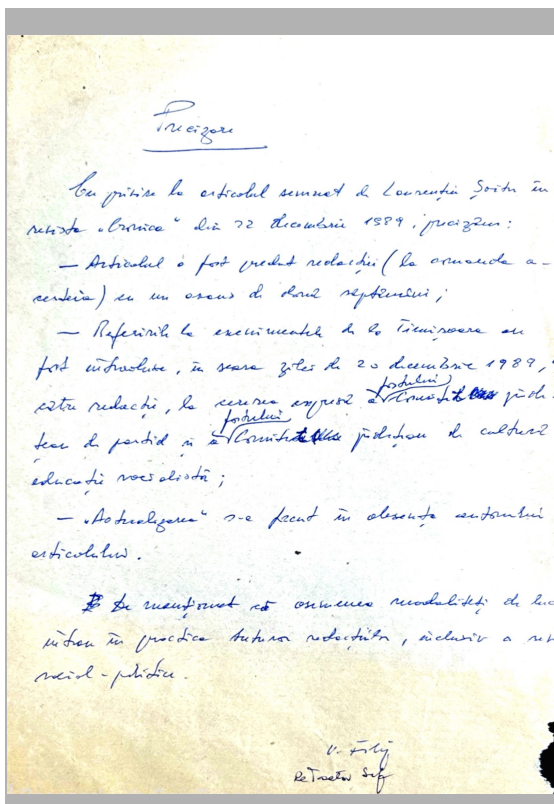 Precizare
Cu privire la articolul semnat de Laurenţiu Şoitu în
revista „Cronica" din 22 decembrie 1989, precizăm:
— Articolul a fost predat redacţiei (la comanda a-
cesteia) cu un avans de două săptămâni;
— Referirile la evenimentele de la Timişoara au
fost introduse, în seara zilei de 20 decembrie 1989, de
către redacţie, la cererea expresă a fostului Comitet jude-
ţean de partid şi a fostului Comitet judeţean de cultură
educaţie socialistă;
— „Actualizarea" s-a făcut în absenţa autorului
articolului.
De menţionat că asemenea modalităţi de luc
intrau în practica tuturor redacţiilor, inclusiv a rev
social-politice.
Redactor Şef